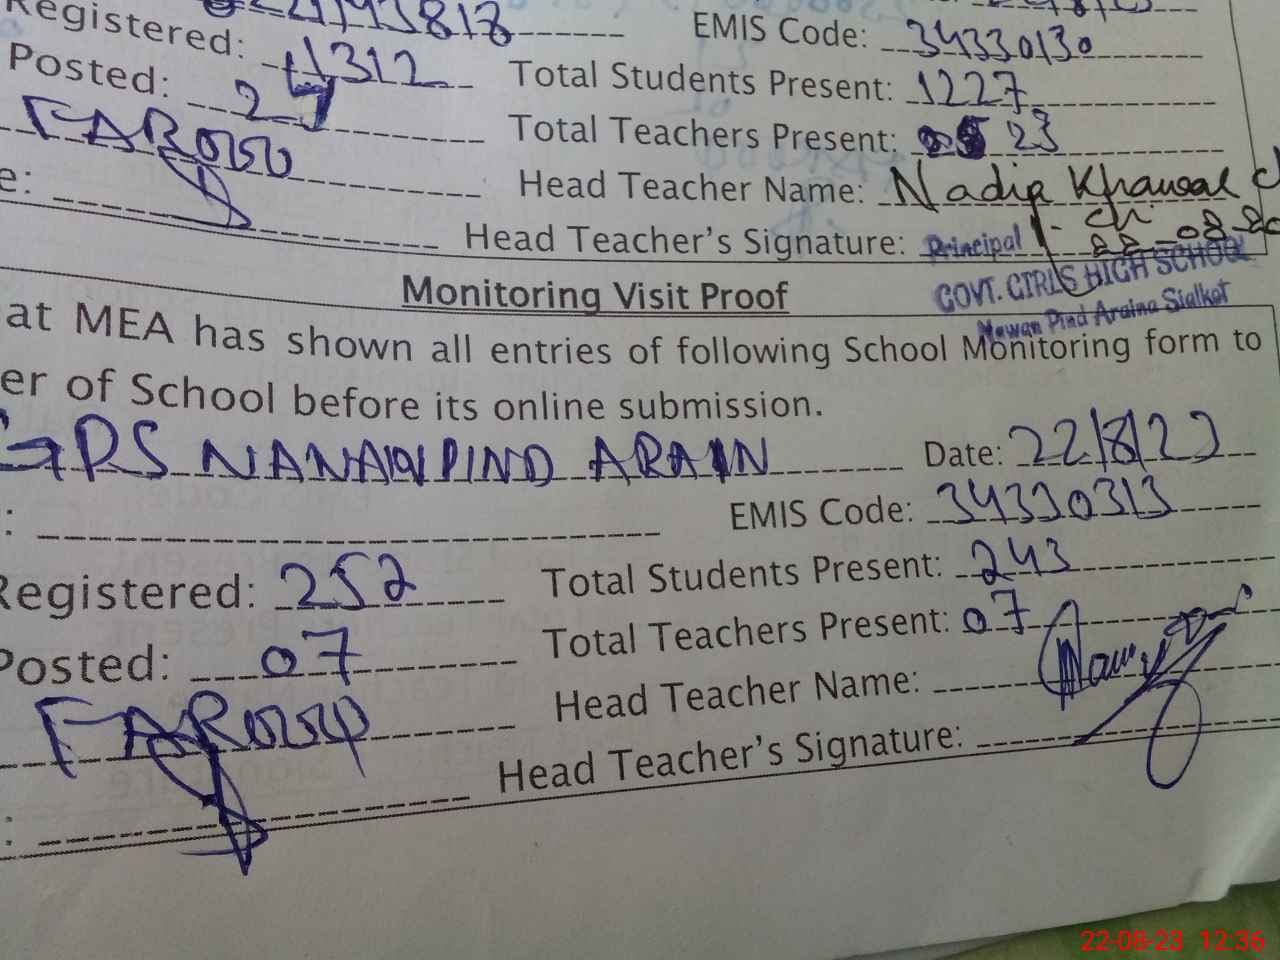 Registered: 1312 EMIS Code: 34330130
Posted: 27 Total Students Present: 1227
FAROOQ Total Teachers Present: 23
e: Head Teacher Name: Nadia Khawar
Head Teacher's Signature: Principal
GOVT. GIRLS HIGH SCHOOL
Nawan Pind Araina Sialkot
Monitoring Visit Proof
at MEA has shown all entries of following School Monitoring form to
er of School before its online submission.
GPS NANAW PIND ARAIN Date: 22/8/23
: EMIS Code: 34330313
Registered: 252 Total Students Present: 243
Posted: 07 Total Teachers Present: 07
FAROOQ Head Teacher Name:
: Head Teacher's Signature:
22-08-23 12:36